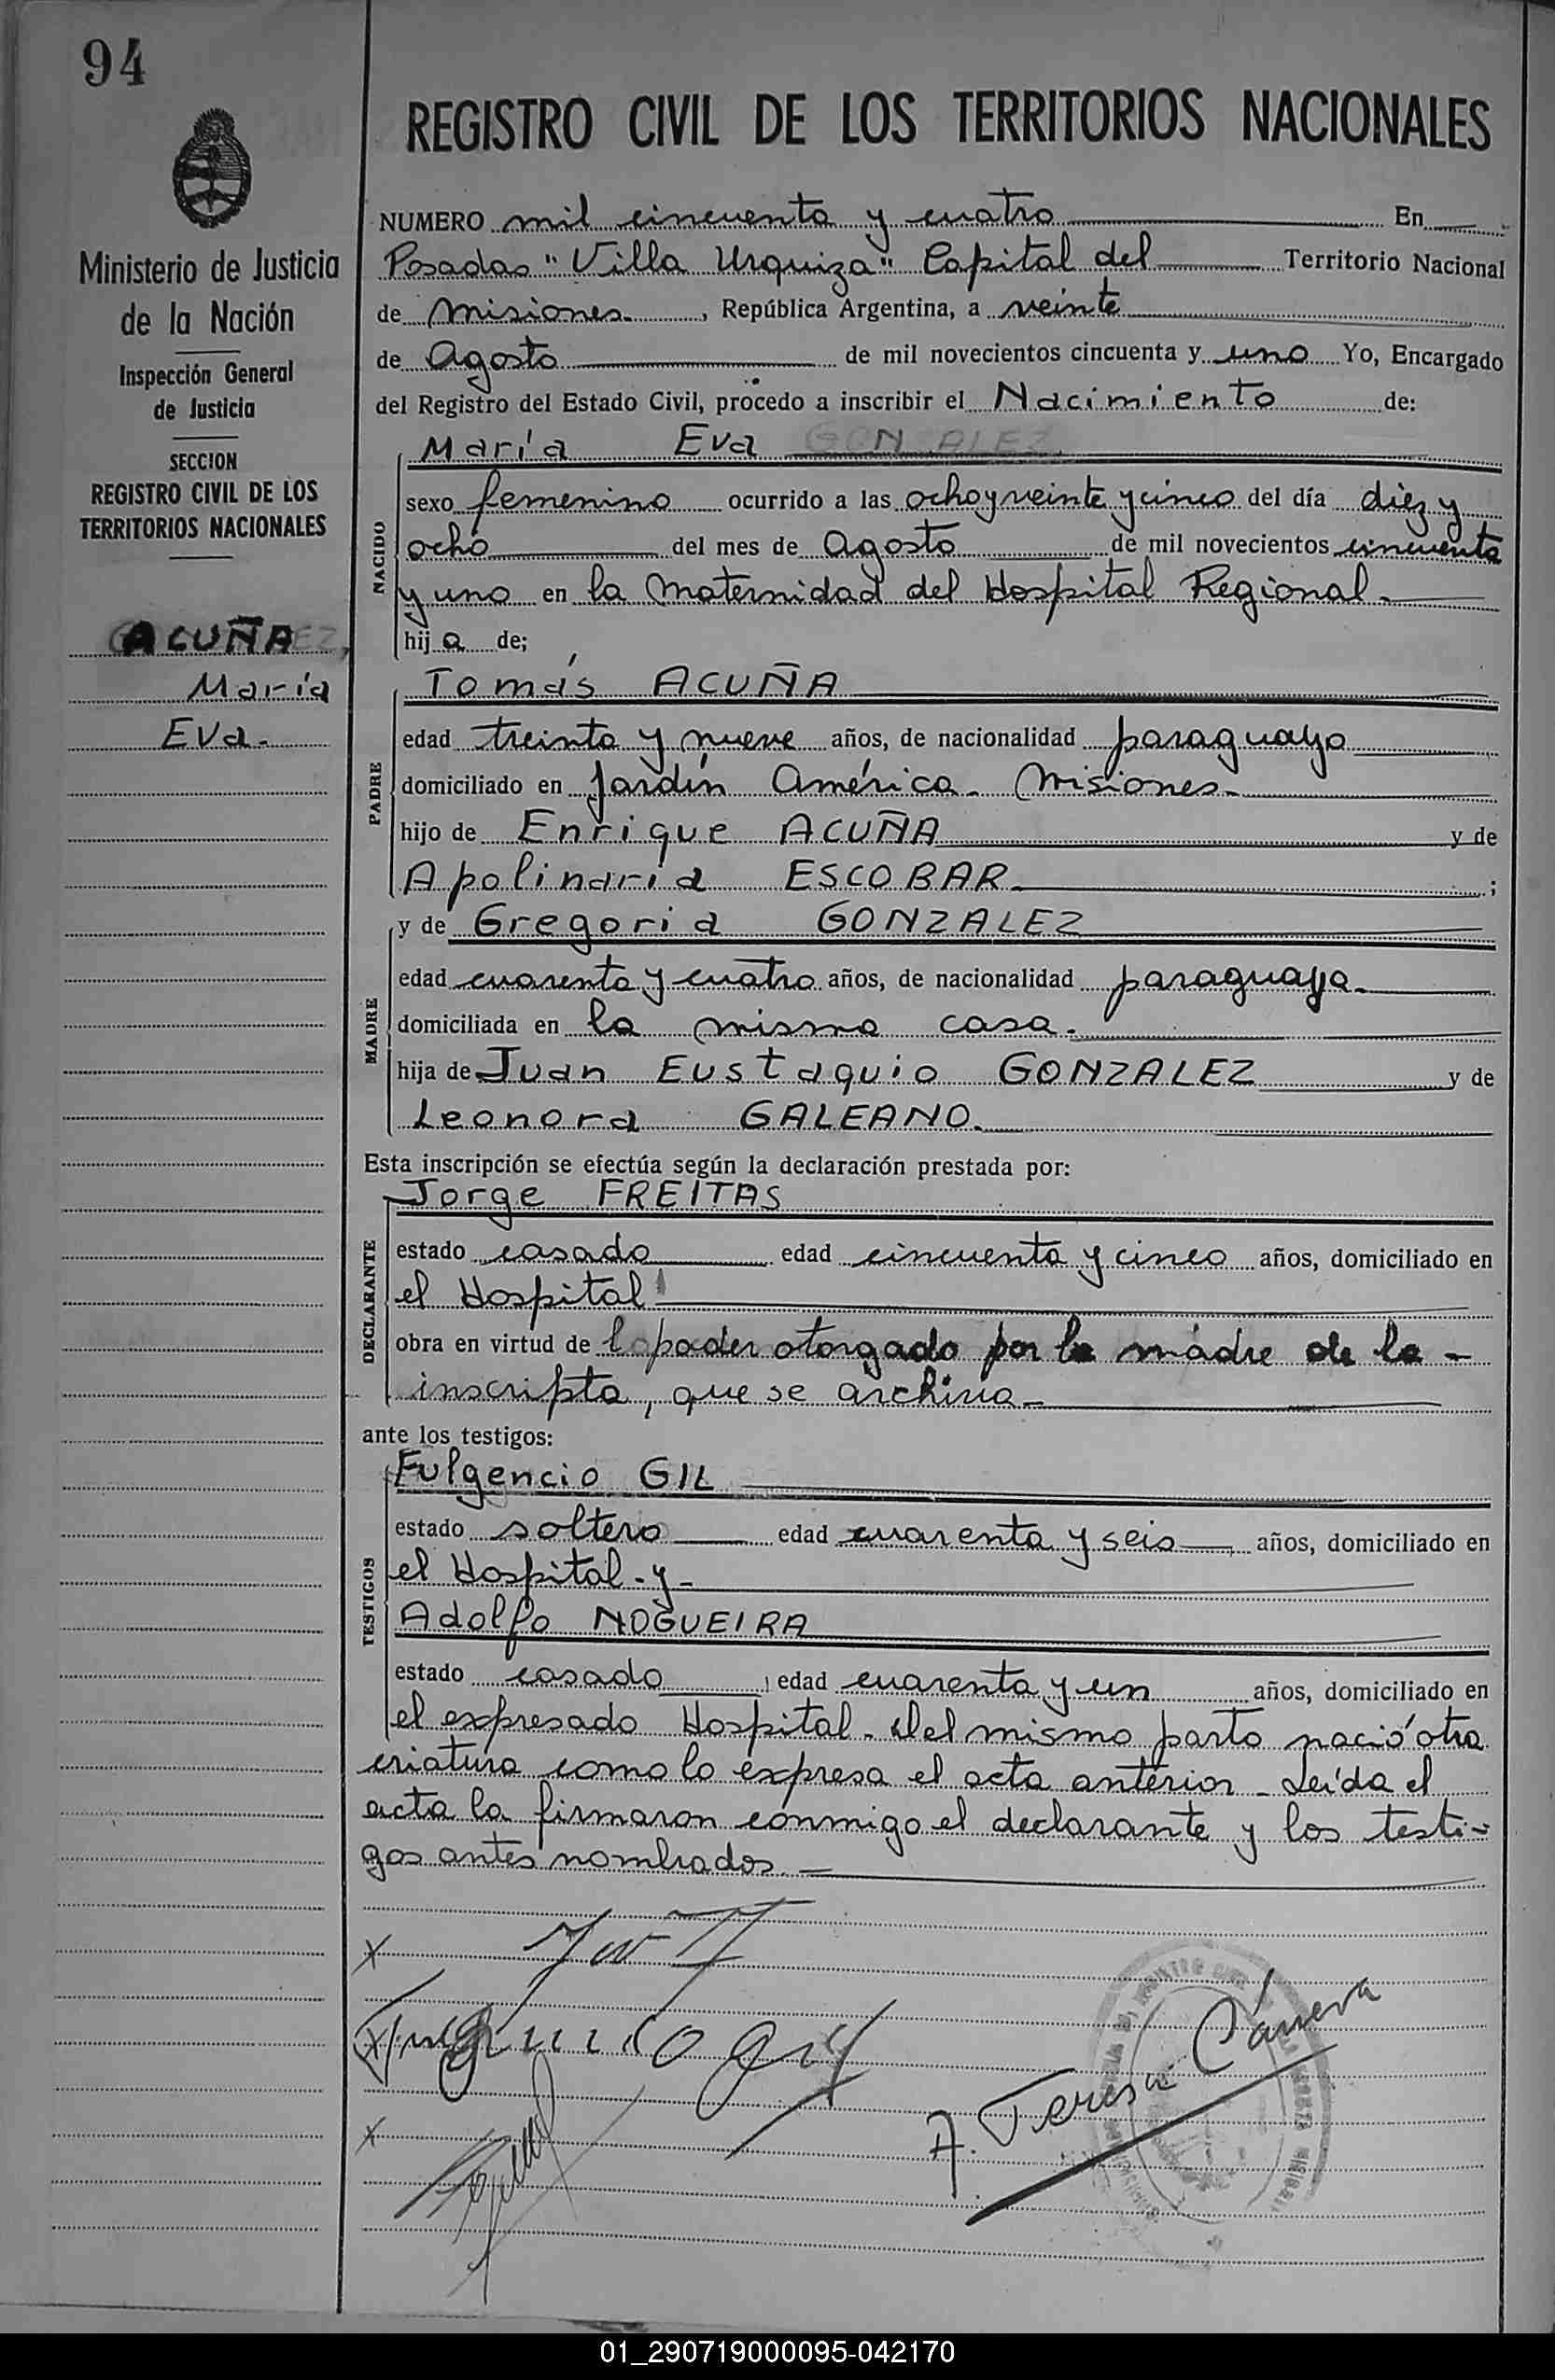 94
REGISTRO CIVIL DE LOS TERRITORIOS NACIONALES
Ministerio de Justicia
de la Nación
Inspección General
de Justicia
SECCION
REGISTRO CIVIL DE LOS
TERRITORIOS NACIONALES
ACUÑA
María
Eva.
NUMERO mil cincuenta y cuatro En
Posadas "Villa Urquiza" Capital del Territorio Nacional
de Misiones, República Argentina, a veinte
de Agosto de mil novecientos cincuenta y uno Yo, Encargado
del Registro del Estado Civil, procedo a inscribir el Nacimiento de:
NACIDO
María Eva GONZALEZ
sexo femenino ocurrido a las ocho y veinte y cinco del día diez y
ocho del mes de Agosto de mil novecientos cincuenta
y uno en la Maternidad del Hospital Regional.-
hija de;
PADRE
Tomás ACUÑA
edad treinta y nueve años, de nacionalidad paraguayo
domiciliado en Jardín América - Misiones.-
hijo de Enrique ACUÑA y de
Apolinaria ESCOBAR ;
MADRE
y de Gregoria GONZALEZ
edad cuarenta y cuatro años, de nacionalidad paraguaya.
domiciliada en la misma casa.
hija de Juan Eustaquio GONZALEZ y de
Leonora GALEANO.
Esta inscripción se efectúa según la declaración prestada por:
DECLARANTE
Jorge FREITAS
estado casado edad cincuenta y cinco años, domiciliado en
el Hospital
obra en virtud de l poder otorgado por la madre de la -
inscripta, que se archiva -
ante los testigos:
TESTIGOS
Fulgencio GIL
estado soltero edad cuarenta y seis años, domiciliado en
el Hospital - y -
Adolfo NOGUEIRA
estado casado, edad cuarenta y un años, domiciliado en
el expresado Hospital. Del mismo parto nació otra
criatura como lo expresa el acta anterior - Leída el
acta la firmaron conmigo el declarante y los testi-
gos antes nombrados. -
X
X Fulgencio Gil
X
A. Teresa Cáneva
01_290719000095-042170